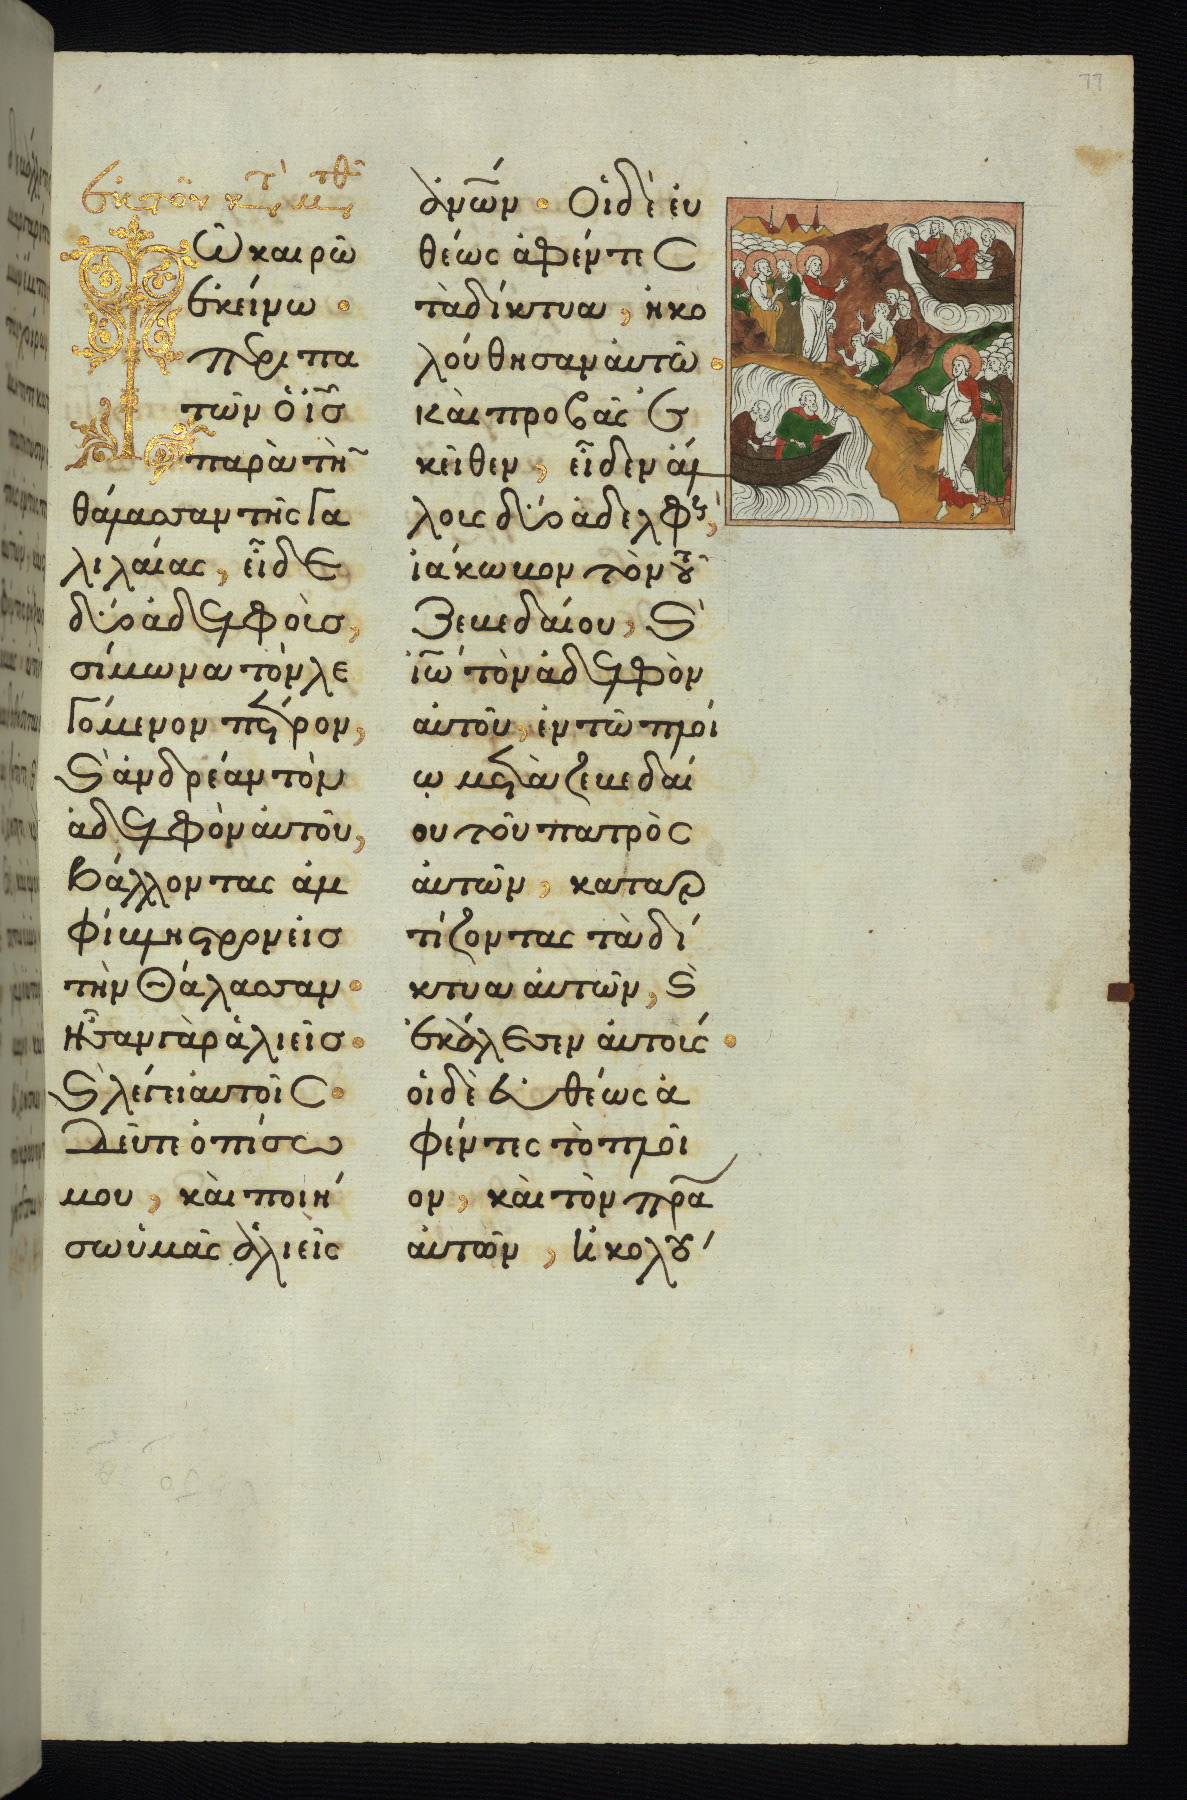 77
ἐκ τοῦ κ̅τ̅ μ̅τ̅θ̅
Τῶ καιρῶ
ἐκείνω ·
περιπα
τῶν ὁ ἰ̅ς̅
παρὰ τὴν
θάλασσαν τῆς Γα
λιλαίας, εἶδε
δύο ἀδελφοὺς,
σίμωνα τὸν λε
γόμενον πέτρον,
ϗ ἀνδρέαν τὸν
ἀδελφὸν ἀυτοῦ,
βάλλοντας ἀμ
φίβληστρον εἰς
τὴν θάλασσαν ·
ἦσαν γὰρ ἁλιεῖς ·
ϗ λέγει ἀυτοῖς ·
Δεῦτε ὀπίσω
μου, κὰι ποιή
σω ὑμᾶς ἁλιεῖς
ἀ̅ν̅ω̅ν · Οἱ δὲ ἐυ
θέως ἀφέντες
τὰ δίκτυα, ἠκο
λούθησαν ἀυτῶ ·
Κὰι προβὰς ἐ
κεῖθεν, εἶδεν ἄλ
λους δύο ἀδελφοὺς,
ἰάκωβον τὸν τοῦ
Ζεβεδαίου, ϗ
ἰ̅ω̅ τὸν ἀδελφὸν
ἀυτοῦ, ἐν τῶ πλοί
ω μετὰ ζεβεδαί
ου τοῦ πατρὸς
ἀυτῶν, καταρ
τίζοντας τὰ δί
κτυα ἀυτῶν, ϗ
ἐκάλεσεν ἀυτούς ·
οἱ δὲ ἐυθέως ἀ
φέντες τὸ πλοῖ
ον, κὰι τὸν π̅ρ̅α̅
ἀυτῶν, ἠκολού